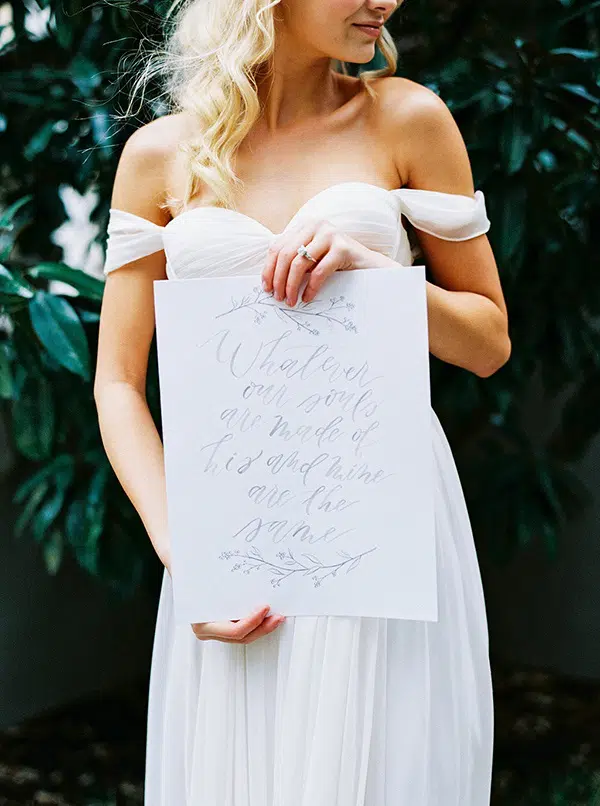 Whatever
our souls
are made of
his and mine
are the
same